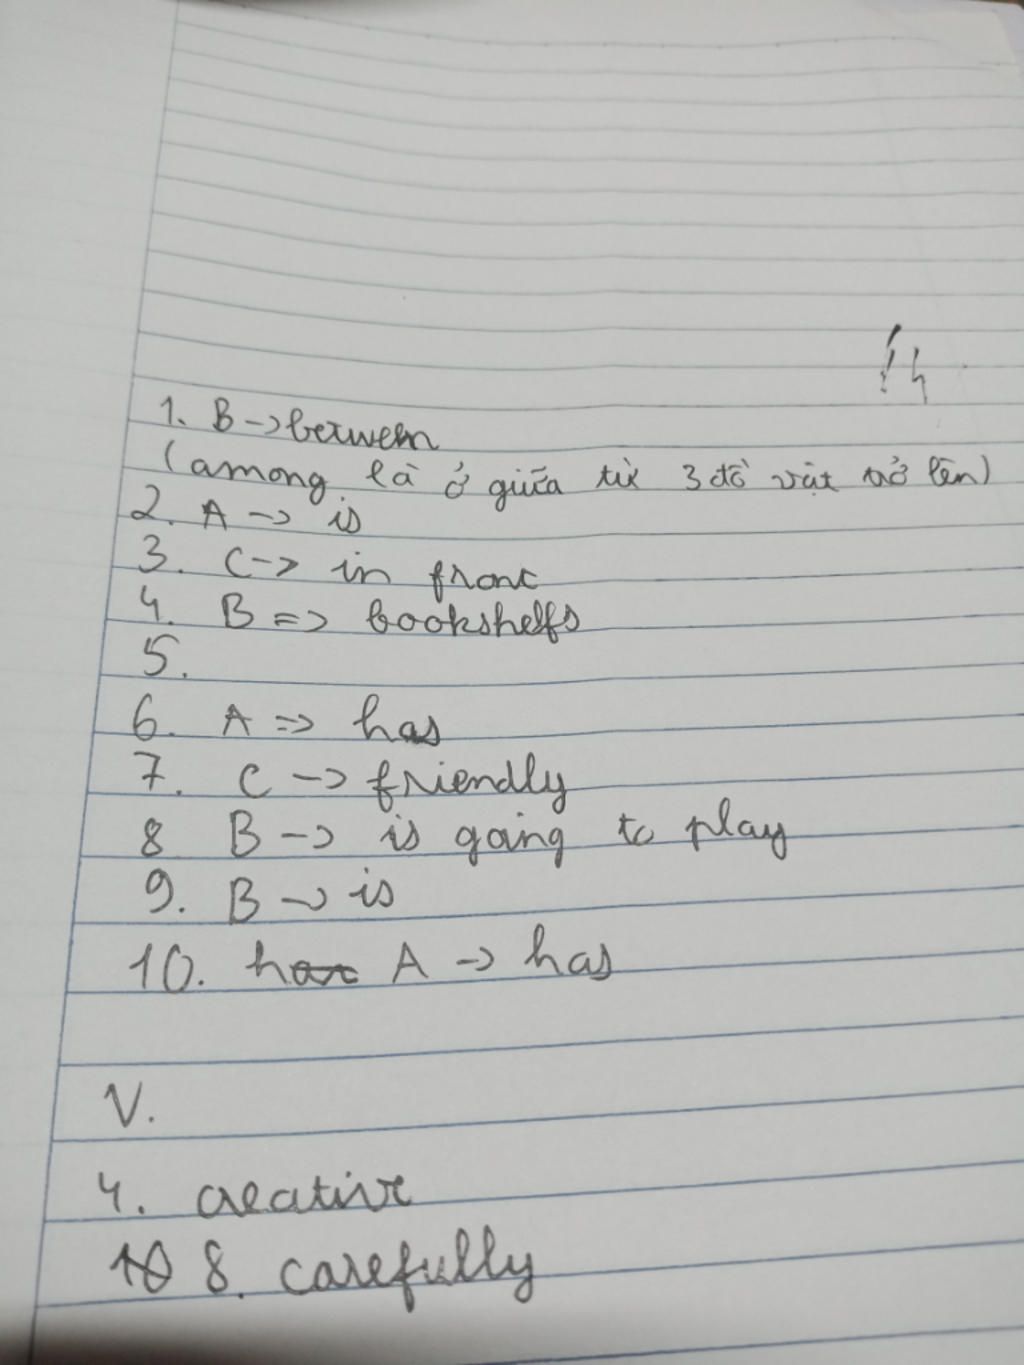 1. B -> between
(among là ở giữa từ 3 đồ vật trở lên)
2. A -> is
3. C -> in front
4. B => bookshelfs
5.
6. A => has
7. C -> friendly
8 B -> is going to play
9. B -> is
10. A -> has
V.
4. creative
8. carefully